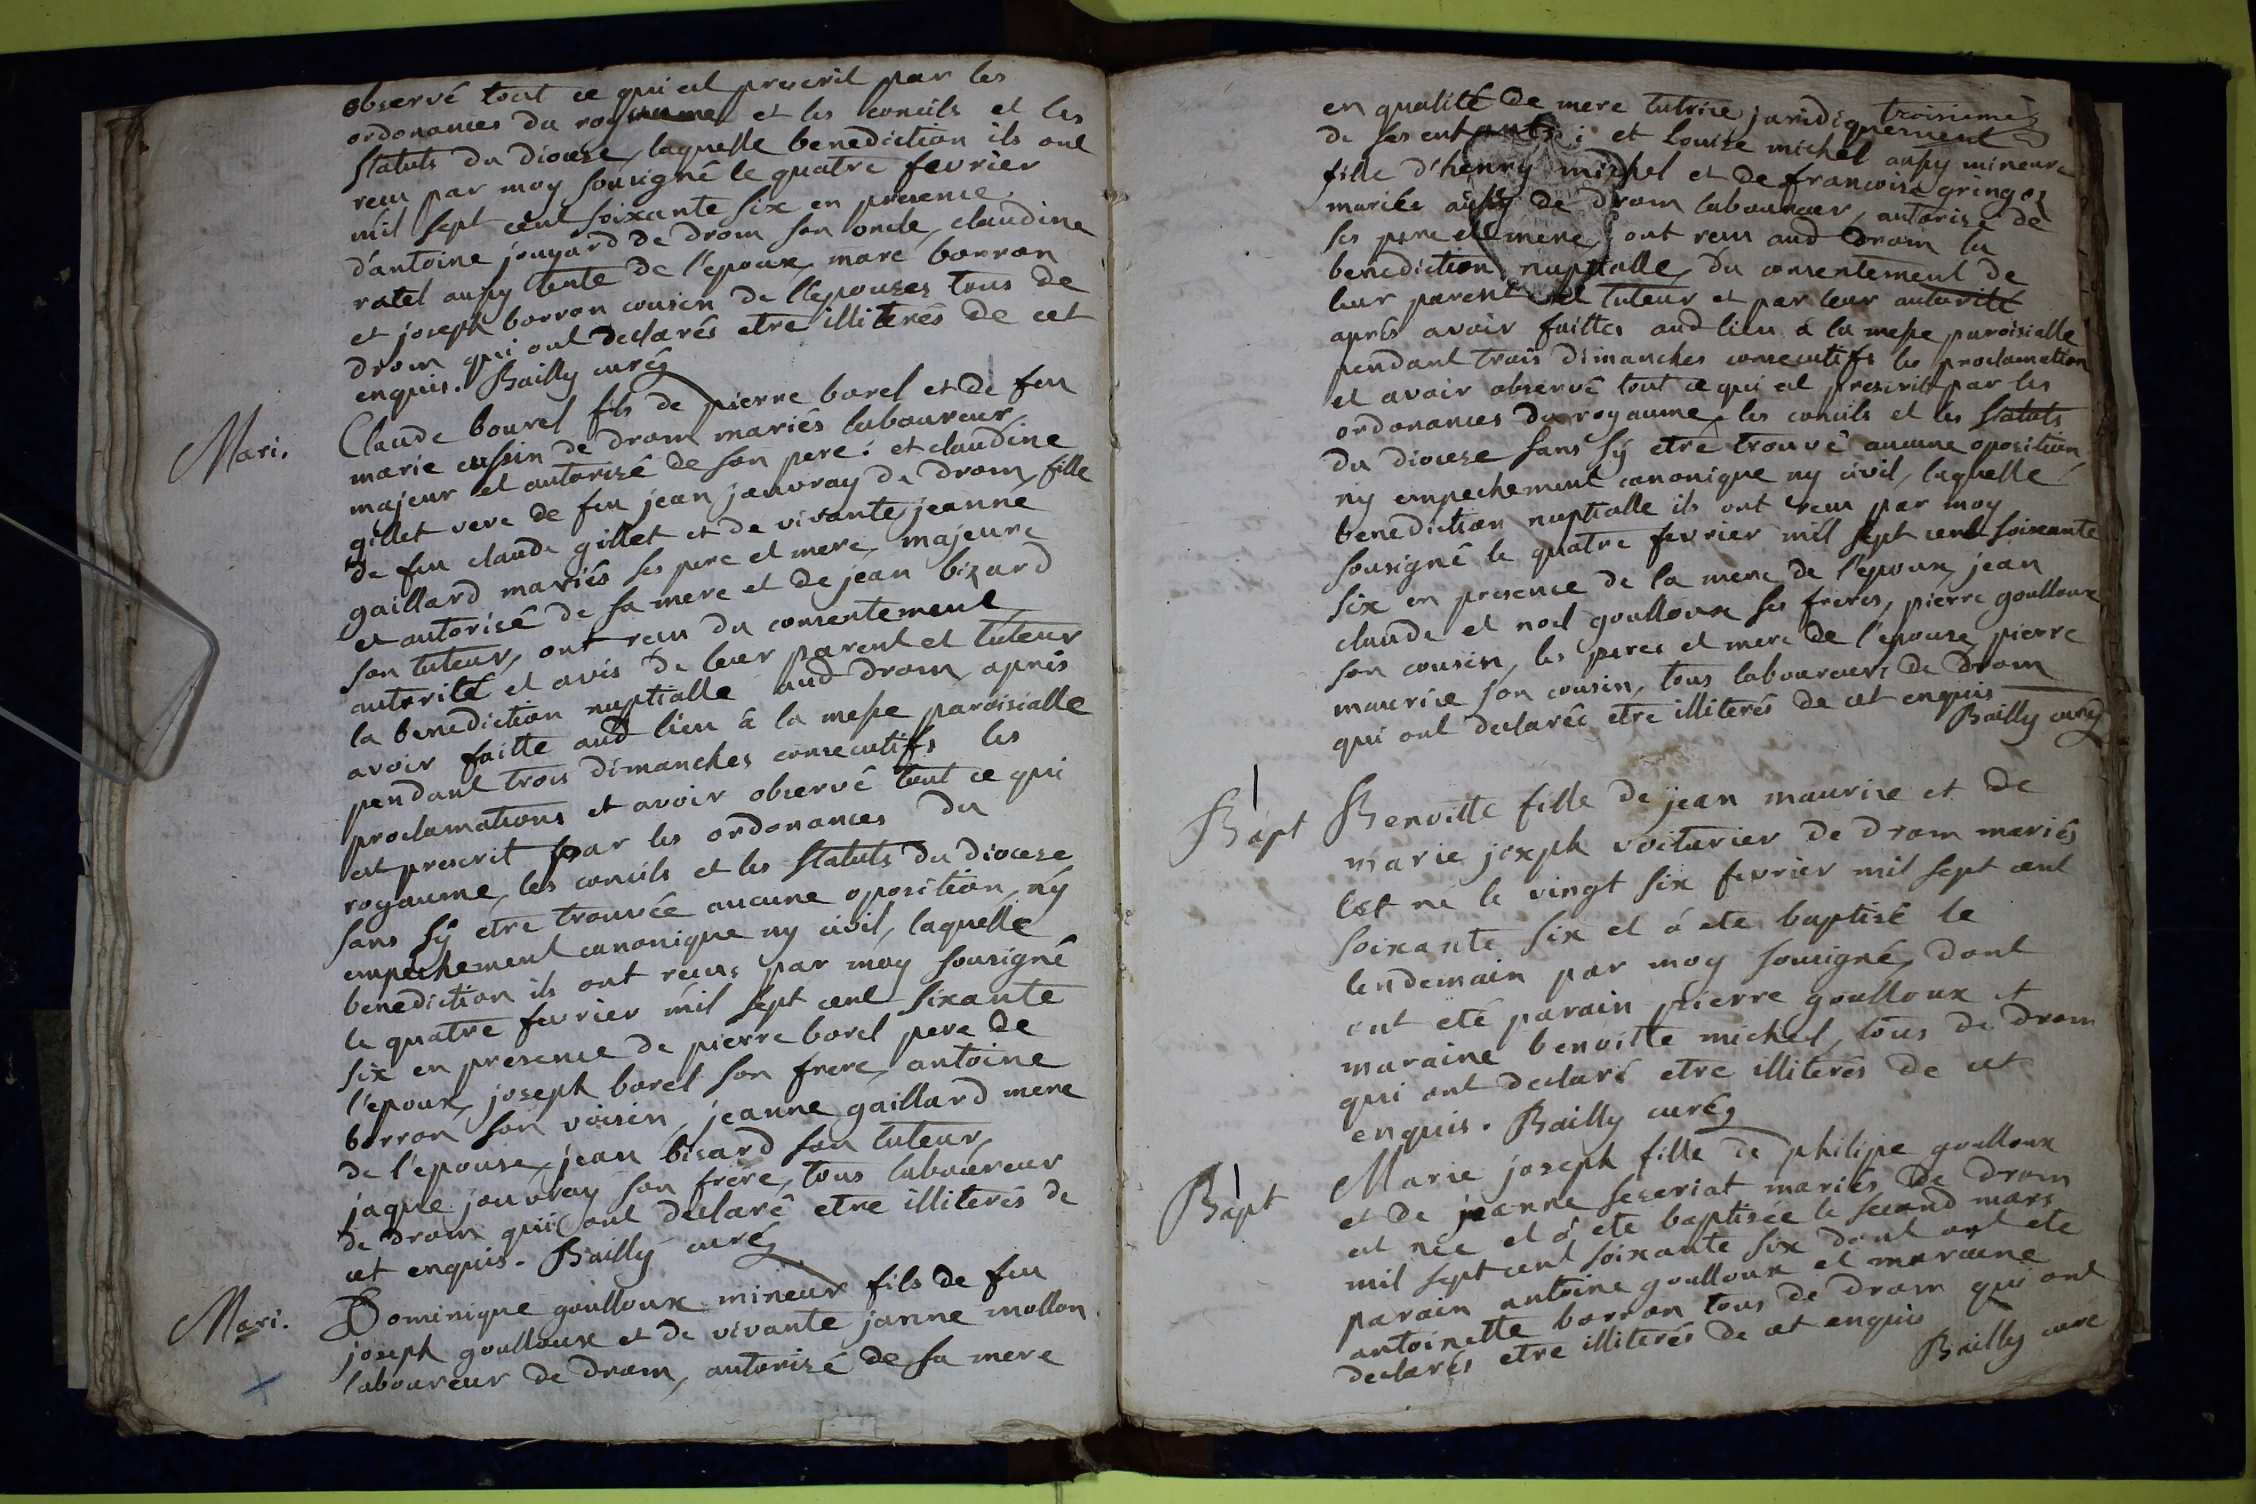 observé tout ce qui est prescrit par les
ordonances du royaume et les concils et les
statuts du diocese, laquelle benediction ils ont
recu par moy sousigné le quatre fevrier
mil sept cent soixante six en presence
d'antoine jouyard de drom son oncle, claudine
ratel aussy tente de l'epoux, marc borron
et joseph borron cousin de l'epouses tous de
drom qui ont declarés etre illiterés de cet
enquis. Bailly curé
Mari.
Claude bourel fils de pierre borel et de feu
marie cussin de drom mariés laboureur
majeur et autorisé de son pere : et claudine
gillet veve de feu jean jauvray de drom, fille
de feu claude gillet et de vivante jeanne
gaillard mariés ses pere et mere, majeure
et autorisé de sa mere et de jean bizard
son tuteur, ont recu du consentement
autorité et avis de leur parent et tuteur
la benediction nuptialle aud drom, après
avoir faitte aud lieu à la messe paroisialle
pendant trois dimanches consecutifs les
proclamations et avoir observé tout ce qui
est prescrit par les ordonances du
royaume, les conciils et les statuts du diocese
sans sy etre trouvée aucune oposition, ny
empechement canonique ny civil, laquelle
benediction ils ont recus par moy sousigné
le quatre fevrier mil sept cent sixante
six en presence de pierre borel pere de
l'epoux, joseph borel son frere, antoine
borron son voisin, jeanne gaillard mere
de l'epouse, jean bisard son tuteur,
jaque jouvray son frere, tous laboureur
de drom qui ont declaré etre illiterés de
cet enquis. Bailly curé
Mari.
Dominique goulloux mineur fils de feu
joseph goulloux et de vivante janne mollon
laboureur de drom, autorisé de sa mere
troisieme
en qualité de mere tutrice juridiquement
de ses enfants ; et Louise michel aussy mineure
fille d'henry michel et de francoise gringoz
mariés aussy de drom laboureur, autorisé de
ses pere et mere, ont recu aud drom la
benediction nuptialle, du consentement de
leur parent et tuteur et par leur autorité
aprés avoir faittes aud lieu à la messe paroisialle
pendant trois dimanches consecutifs les proclamation
et avoir observé tout ce qui est prescrit par les
ordonances du royaume, les conciils et les statuts
du diocese sans sy etre trouvé aucune oposition
ny empechement canonique ny civil, laquelle
benediction nuptialle ils ont recu par moy
sousigné le quatre fevrier mil sept cent soixante
six en presence de la mere de l'epoux, jean
claude et noel goulloux ses freres, pierre goulloux
son cousin, les peres et mere de l'epouse, pierre
maurice son cousin, tous laboureurs de drom
qui ont declaréc etre illiterés de cet enquis
Bailly curé
Bapt
Benoitte fille de jean maurise et de
marie joseph voiturier de drom mariés
est né le vingt six fevrier mil sept cent
soixante six et à ete baptisé le
lendemain par moy sousigné, dont
ont eté parain pierre goulloux et
maraine benoitte michel, tous de drom
qui ont declaré etre illiterés de cet
enquis. Bailly curé
Bapt
Marie joseph fille de philipe goulloux
et de jeanne seseriat mariés de drom
est née et à ete baptisée le second mars
mil sept cent soixante six dont ont ete
parain antoine goulloux et maraine
antoinette borron tous de drom qui ont
declarés etre illiterés de cet enquis
Bailly curé